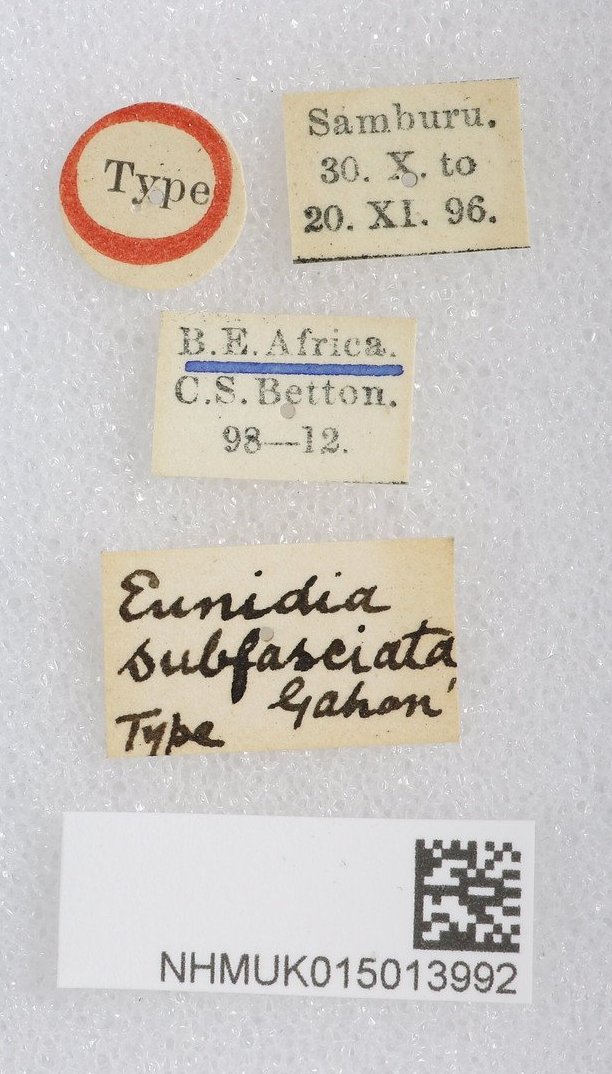 Type
Samburu.
30. X. to
20. XI. 96.
B.E. Africa.
C.S. Betton.
98—12.
Eunidia
subfasciata
Gahan
Type
NHMUK015013992